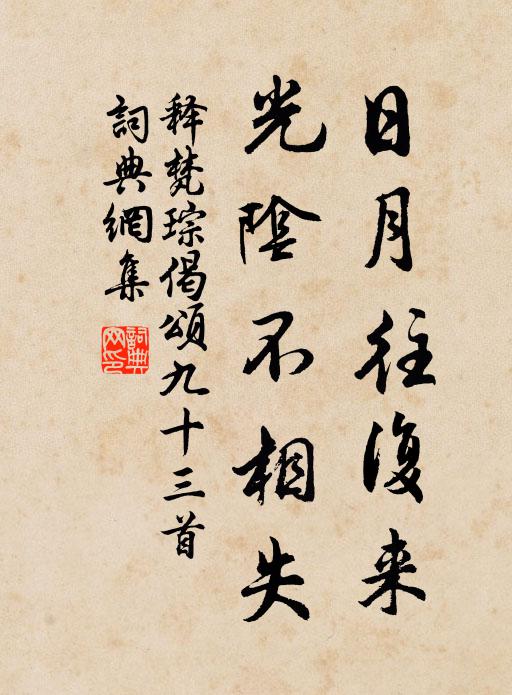 日月往復来
光陰不相失
释梵琮偈颂九十三首
詞典網集
詞典
网印